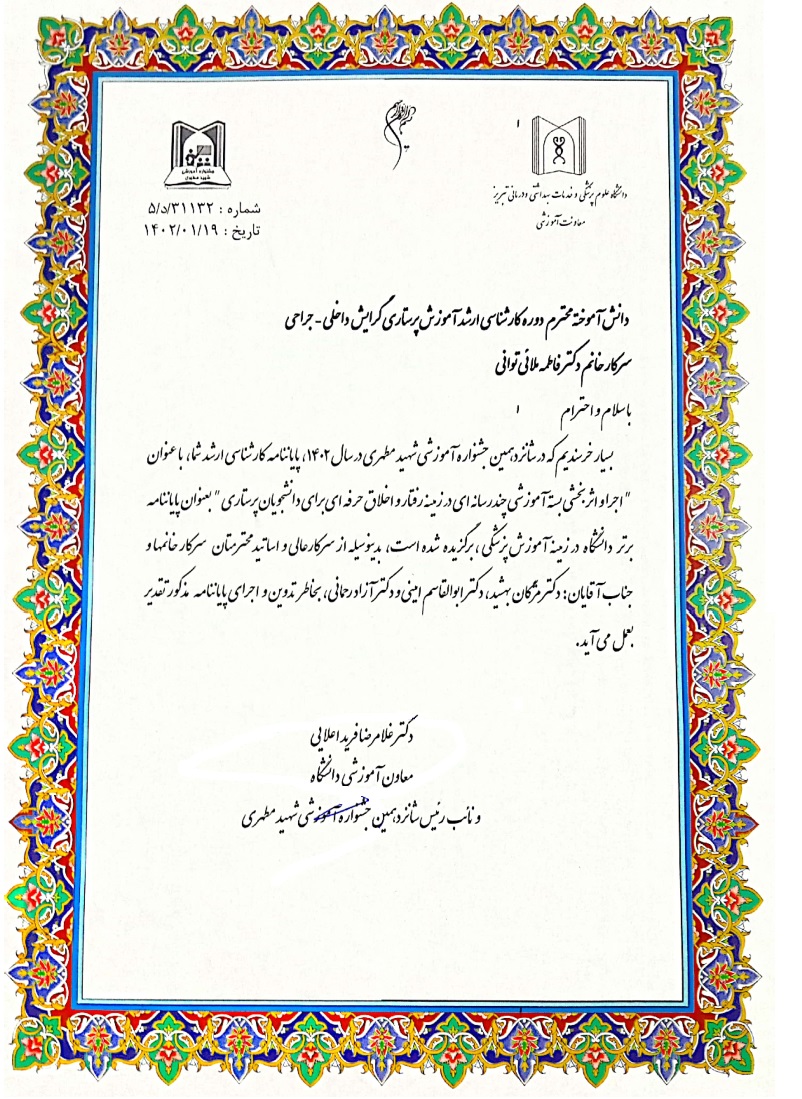 بسم الله الرحمن الرحیم
دانشگاه علوم پزشکی و خدمات بهداشتی و درمانی تبریز
معاونت آموزشی
جشنواره آموزشی
شهید مطهری
شماره : ۵/د/۳۱۱۳۲
تاریخ : ۱۴۰۲/۰۱/۱۹
دانش آموخته محترم دوره کارشناسی ارشد آموزش پرستاری گرایش داخلی - جراحی
سرکار خانم دکتر فاطمه ملائی توانی
با سلام و احترام
بسیار خرسندیم که در شانزدهمین جشنواره آموزشی شهید مطهری در سال ۱۴۰۲، پایاننامه کارشناسی ارشد شما، با عنوان
"اجرا و اثربخشی بسته آموزشی چندرسانه ای در زمینه رفتار و اخلاق حرفه ای برای دانشجویان پرستاری" بعنوان پایاننامه
برتر دانشگاه در زمینه آموزش پزشکی، برگزیده شده است، بدینوسیله از سرکار عالی و اساتید محترمتان سرکار خانمها و
جناب آقایان: دکتر مژگان بهشید، دکتر ابوالقاسم امینی و دکتر آزاد رحمانی، بخاطر تدوین و اجرای پایاننامه مذکور تقدیر
بعمل می آید.
دکتر غلامرضا فرید اعلایی
معاون آموزشی دانشگاه
و نائب رئیس شانزدهمین جشنواره آموزشی شهید مطهری